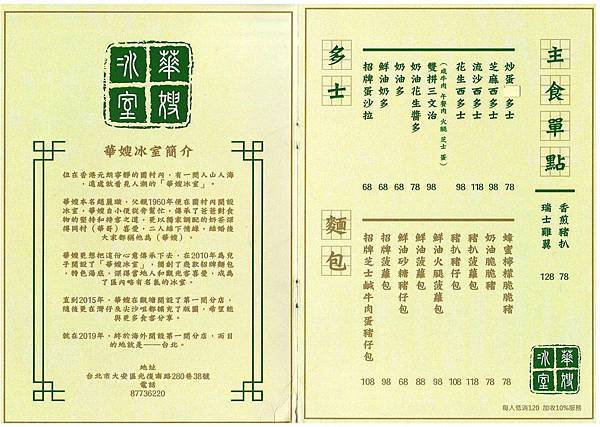 華嫂冰室
華嫂冰室簡介
但在香港元朗寧靜的圍村內，有一間人山人海，遠處就看見人潮的「華嫂冰室」。
華嫂本名趙麗璇，父親1960年便在圍村內開設
冰室，華嫂自小便從旁幫忙，傳承了爸爸對食
物的堅持和待客之道，更以獨家調配的奶茶深
得同村（華哥）喜愛，二人締下情緣，結婚後
大家都稱她為（華嫂）。
華嫂更想把這份心意傳承下去，在2010年為兒
子開設了「華嫂冰室」，開創了幾款招牌麵包，
特色湯底，深得當地人和觀光客喜愛，成為
了區內略有名氣的冰室。
直到2015年，華嫂在觀塘開設了第一間分店，
隨後更在灣仔及尖沙咀都擴充了版圖，希望能
與更多食客分享。
就在2019年，終於海外開設第一間分店，而目
的地就是——台北。
地址
台北市大安區光復南路280巷38號
電話
87736220
主食單點
香煎豬扒 78
瑞士雞翼 128
多士
炒蛋 多士 78
芝麻西多士 98
流沙西多士 118
花生西多士 98
雙拼三文治 98
（咸牛肉 午餐肉 火腿 芝士 蛋）
奶油花生醬多 78
奶油多 68
鮮油奶多 68
招牌蛋沙拉 68
麵包
蜂蜜檸檬脆脆豬 78
奶油脆脆豬 78
豬扒菠蘿包 118
豬扒豬仔包 108
鮮油火腿菠蘿包 98
鮮油菠蘿包 78
鮮油砂糖豬仔包 68
招牌菠蘿包 98
招牌芝士鹹牛肉蛋豬仔包 108
華嫂冰室
每人低消120 加收10%服務